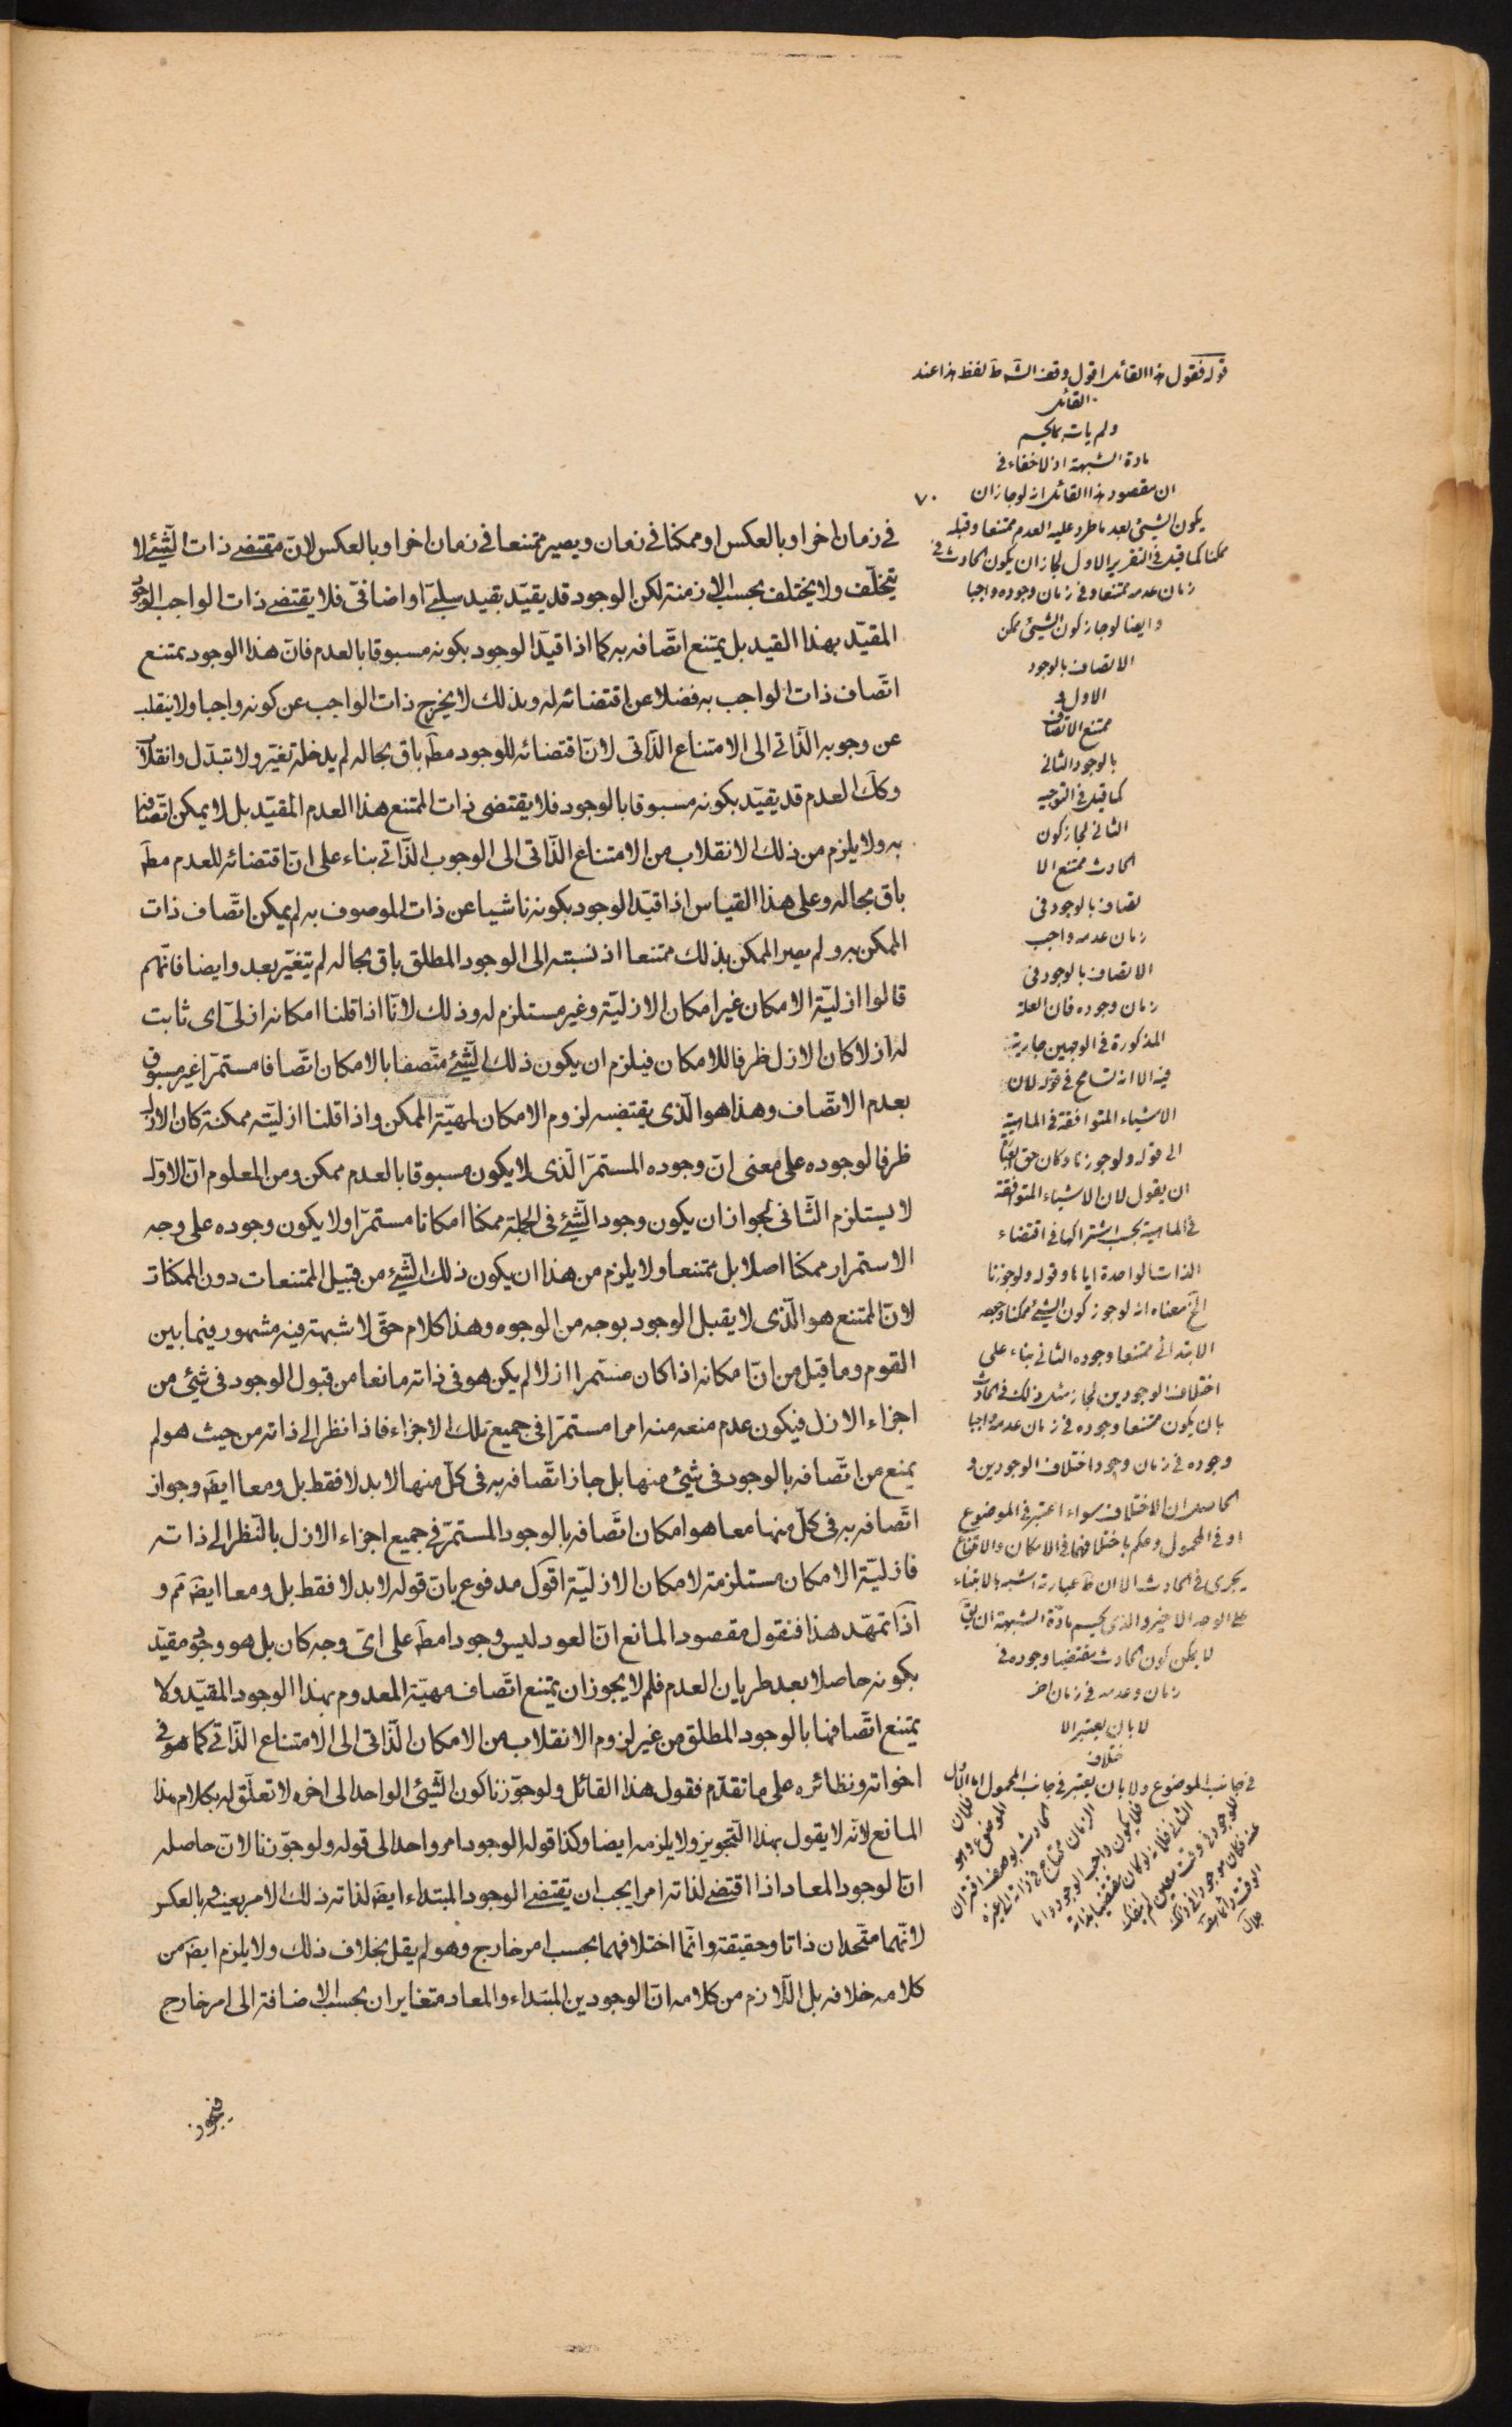 في زمان اخر او بالعكس او ممكنا في زمان ويصير ممتنعا في زمان اخر او بالعكس لانّ مقتضى ذات الشّيئ لا
يتخلّف ولا يختلف بحسب الازمنة لكن الوجود قد يقيّد بقيد سلبيّ او اضافيّ فلا يقتضى ذات الواجب الوجود
المقيّد بهذا القيد بل يمتنع اتّصافه به كما اذا قيّد الوجود بكونه مسبوقا بالعدم فانّ هذا الوجود يمتنع
اتّصاف ذات الواجب به فضلا عن اقتضائه له وبذلك لا يخرج ذات الواجب عن كونه واجبا ولا ينقلب
عن وجوبه الذّاتى الى الامتناع الذّاتى لانّ اقتضائه للوجود مطَ باق بحاله لم يدخله تغيّر ولا تبدّل وانقلاب
وكك العدم قد يقيّد بكونه مسبوقا بالوجود فلا يقتضى ذات الممتنع هذا العدم المقيّد بل لا يمكن اتّصافها
به ولا يلزم من ذلك الانقلاب من الامتناع الذّاتى الى الوجوب الذّاتى بناء على انّ اقتضائه للعدم مطَ
باق بحاله وعلى هذا القياس اذا قيّد الوجود بكونه ناشيا عن ذات الموصوف به لم يمكن اتّصاف ذات
الممكن به ولم يصر الممكن بذلك ممتنعا اذ نسبته الى الوجود المطلق باق بحاله لم يتغيّر بعد وايضا فانّهم
قالوا ازليّة الامكان غير امكان الازليّة وغير مستلزم له وذلك لانّا اذا قلنا امكانه ازليّ اى ثابت
له ازلا كان الازل ظرفا للامكان فيلزم ان يكون ذلك الشّيئ متّصفا بالامكان اتّصافا مستمرّا غير مسبوق
بعدم الاتّصاف وهذا هو الّذى يقتضيه لزوم الامكان لمهيّة الممكن واذا قلنا ازليّته ممكنة كان الازل
ظرفا لوجوده على معنى انّ وجوده المستمرّ الّذى لا يكون مسبوقا بالعدم ممكن ومن المعلوم انّ الاوّل
لا يستلزم الثّانى لجواز ان يكون وجود الشّيئ فى الجملة ممكنا امكانا مستمرّا ولا يكون وجوده على وجه
الاستمرار ممكنا اصلا بل ممتنعا ولا يلزم من هذا ان يكون ذلك الشّيئ من قبيل الممتنعات دون الممكنات
لانّ الممتنع هو الّذى لا يقبل الوجود بوجه من الوجوه وهذا كلام حقّ لا شبهة فيه مشهور فيما بين
القوم وما قيل من انّ امكانه اذا كان مستمرا ازلا لم يكن هو فى ذاته مانعا من قبول الوجود فى شيئ من
اجزاء الازل فيكون عدم منعه منه امرا مستمرّا فى جميع تلك الاجزاء فاذا نظر الى ذاته من حيث هو لم
يمنع من اتّصافه بالوجود فى شيئ منها بل جاز اتّصافه به فى كلّ منها لا بدلا فقط بل ومعا ايضَ وجواز
اتّصافه به فى كلّ منها معا هو امكان اتّصافه بالوجود المستمرّ فى جميع اجزاء الازل بالنّظر الى ذاته
فازليّة الامكان مستلزمة لامكان الازليّة اقول مدفوع بانّ قوله لا بدلا فقط بل ومعا ايضَ مَم و
اذا تمهّد هذا فنقول مقصود المانع انّ العود ليس وجودا مطَ على اىّ وجه كان بل هو وجود مقيّد
بكونه حاصلا بعد طريان العدم فلم لا يجوز ان يمتنع اتّصاف مهيّة المعدوم بهذا الوجود المقيّد ولا
يمتنع اتّصافها بالوجود المطلق من غير لزوم الانقلاب من الامكان الذّاتى الى الامتناع الذّاتى كما هو فى
اخواته ونظائره على ما تقدّم فقول هذا القائل ولو جوّزنا كون الشّيئ الواحد الى اخره لا تعلّق له بكلام هذا
المانع لانّه لا يقول بهذا التّجويز ولا يلزمه ايضا وكذا قوله الوجود امر واحد الى قوله ولو جوّزنا لانّ حاصله
انّ الوجود المعاد اذا اقتضى لذاته امرا يجب ان يقتضى الوجود المبتداء ايضَ لذاته ذلك الامر بعينه وبالعكس
لانّهما متّحدان ذاتا وحقيقة وانّما اختلافهما بحسب امر خارج وهو لم يقل بخلاف ذلك ولا يلزم ايضَ من
كلامه خلافه بل اللّازم من كلامه انّ الوجودين المبتداء والمعاد متغايران بحسب الاضافة الى امر خارج
فيجوز
قوله فقول هذا القائل اقول وقع لفظ هذا عند
القائل
ولم يات بما يحسم
مادة الشبهة اذ لا خفاء في
ان مقصود هذا القائل انه لو جاز ان
٧٠
يكون الشيئ بعد ما طرء عليه العدم ممتنعا وقبله
ممكنا كما قيل في التقرير الاول لجاز ان يكون الحادث في
زمان عدمه ممتنعا وفي زمان وجوده واجبا
وايضا لو جاز كون الشيئ ممكن
الاتصاف بالوجود
الاول و
ممتنع الاتصاف
بالوجود الثاني
كما قيل في التوجيه
الثاني لجاز كون
الحادث ممتنع الا
تصاف بالوجود في
زمان عدمه واجب
الاتصاف بالوجود في
زمان وجوده فان العلة
المذكورة في الوجهين جارية
فيه الا انه تسامح في قوله لان
الاشياء المتوافقة في الماهية
الى قوله ولو جوزنا وكان حق العبارة
ان يقول لان الاشياء المتوافقة
في الماهية يجب اشتراكها في اقتضاء
الذات الواحدة اياها وقوله ولو جوزنا
الخ معناه انه لو جوز كون الشيئ ممكنا وجوده
الابتدائي ممتنعا وجوده الثاني بناء على
اختلاف الوجودين لجاز مثل ذلك في الحادث
بان يكون ممتنعا وجوده في زمان عدمه واجبا
وجوده في زمان وجود اختلاف الوجودين و
الحاصل ان الاختلاف سواء اعتبر في الموضوع
او في المحمول وحكم باختلافهما في الامكان والامتناع
يجري في الحادث الا ان عبارته اشبه بالابتناء
على الوجه الاخير والذي يحسم مادة الشبهة ان يق
لا يمكن كون الحادث مقتضيا وجوده في
زمان وعدمه في زمان اخر
لا بان يعتبر الا
ختلاف
في جانب الموضوع ولا بان يعتبر في جانب المحمول اما الاول
فلان
الموضوع وهو
الحادث بوصف اقتران
الزمان محتاج في ذاته الى غيره
فلا يكون واجب الوجود واما
الثاني فلانه لو كان مقتضيا لذاته
للوجود في وقت معين لم ينفك
عنه فكان موجودا في ذلك
الوقت دائما